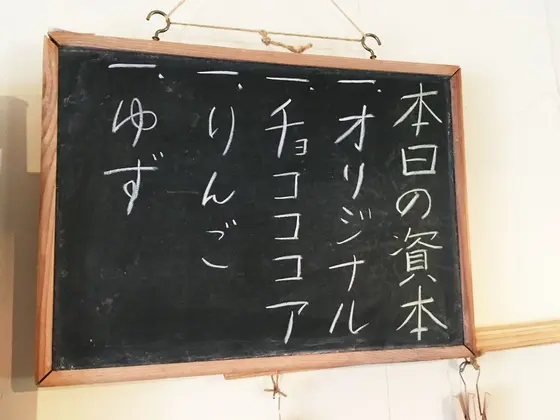 本日の資本
一、オリジナル
一、チョコココア
一、りんご
一、ゆず